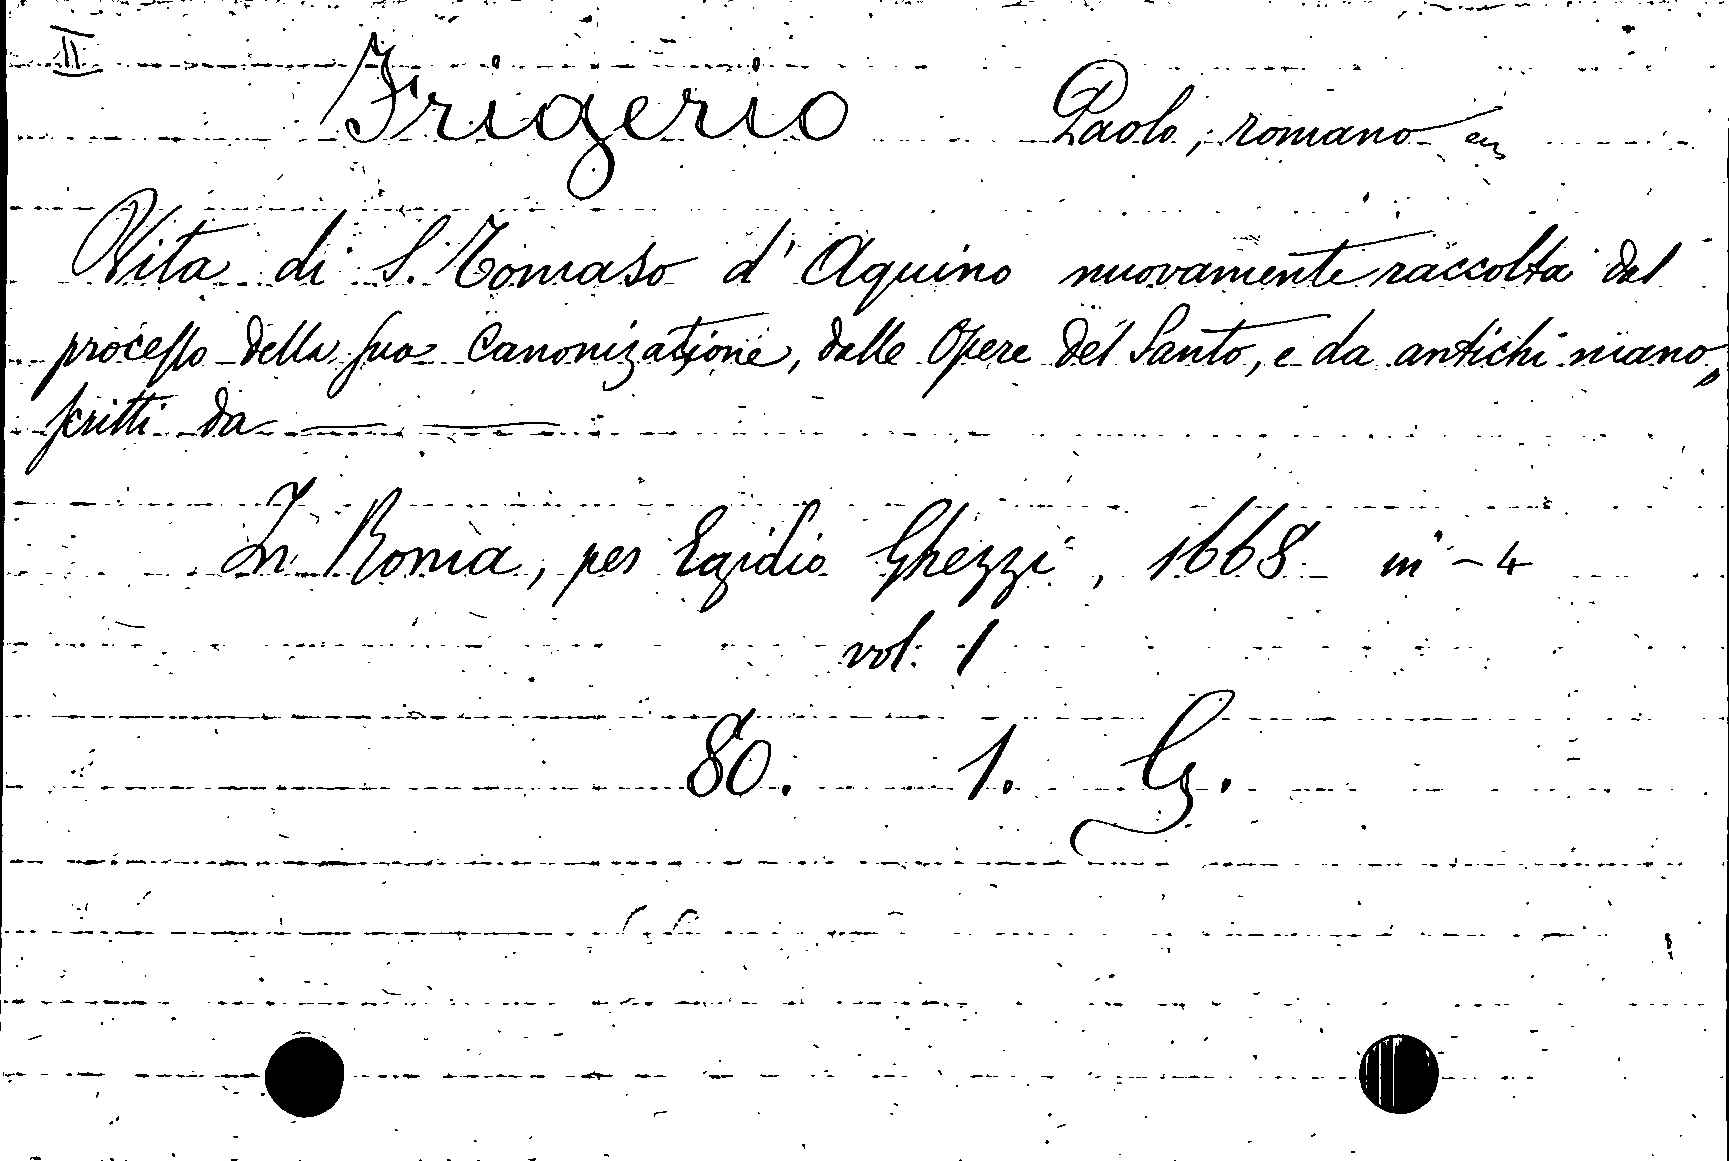 II
Frigerio Paolo, romano
Vita di S. Tomaso d' Aquino nuovamente raccolta dal
proceſſo della ſua Canonizatione, dalle Opere del Santo, e da antichi mano„
ſcritti da —— ——
In Roma, per Egidio Ghezzi, 1668 in - 4
vol. 1
80. 1. G.